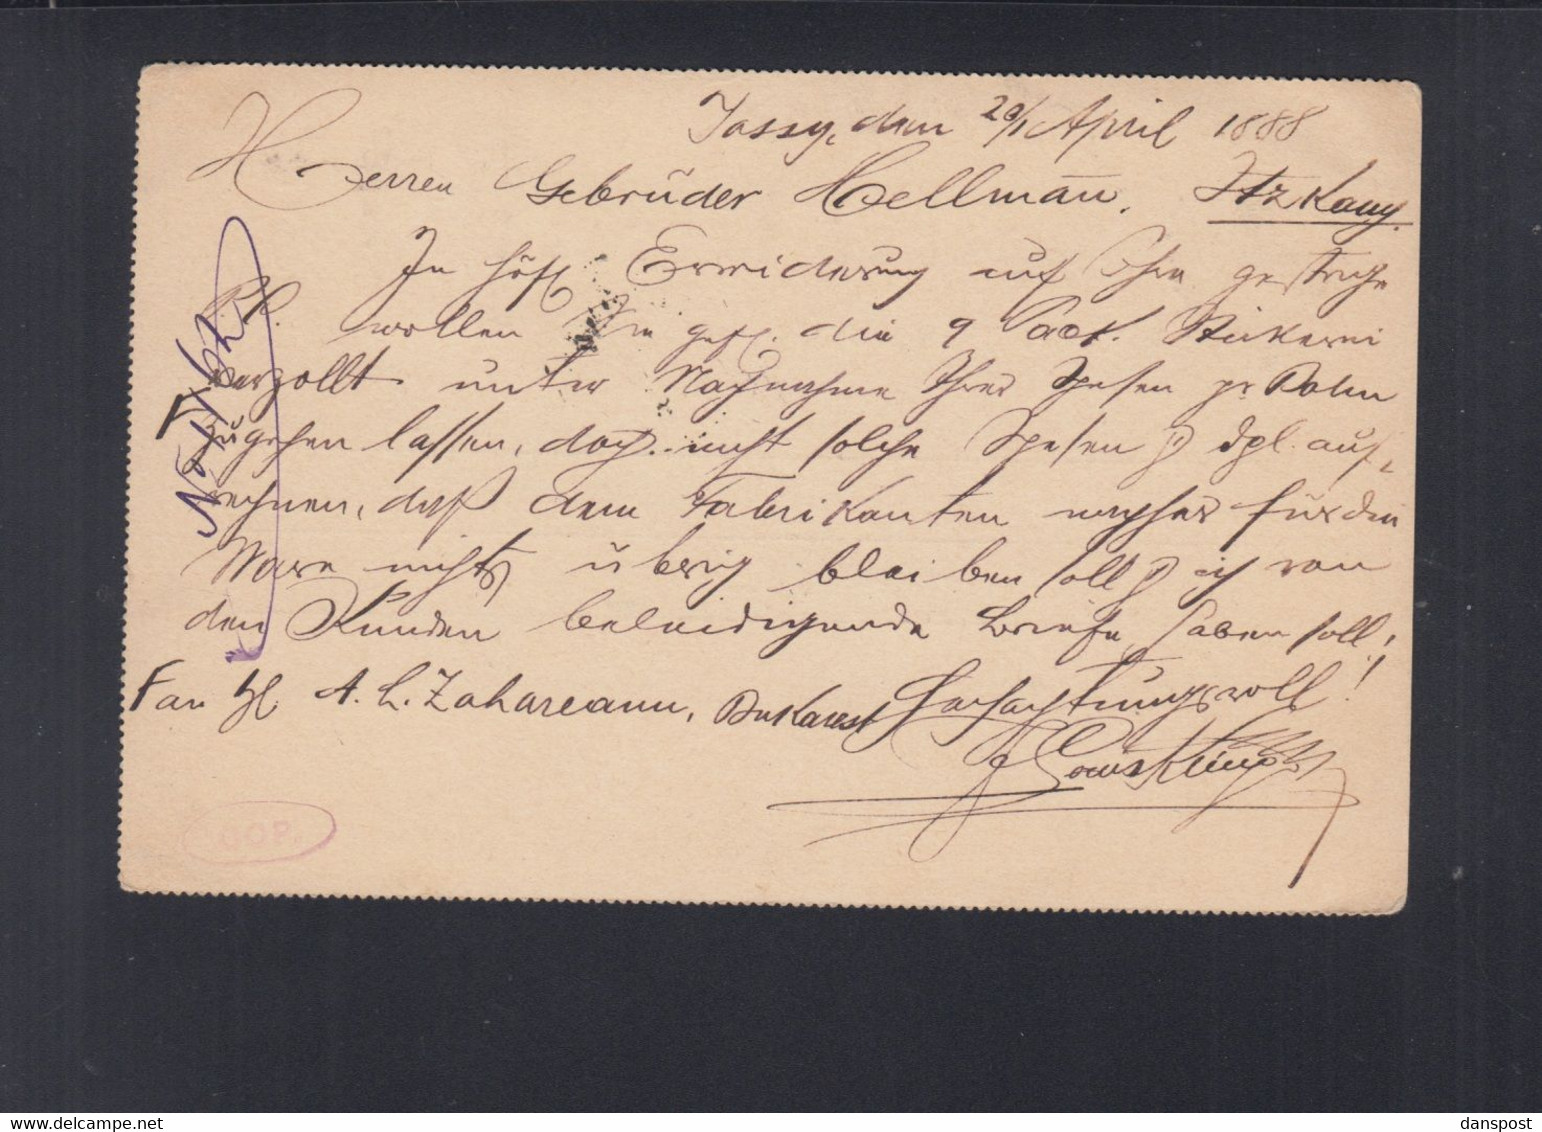 Jassy, den 20/1 April 1888
Herren Gebrüder Hellmañ. Itzkany.
In höfl. Erwiderung auf Ihre gestrige
P.P. wollen Sie gefl. die 9 Pack. Stickerei
verzollt unter Nachnahme Ihrer Spesen pr Bahn
zugehen lassen, doch nicht solche Spesen dpl. auf-
rechnen, daß dem Fabrikanten nachher für die
Ware nichts übrig bleiben soll ich von
den Kunden beleidigende Briefe haben soll!
A. L. Zahareanu, Bukarest Hochachtungsvoll!
danspost